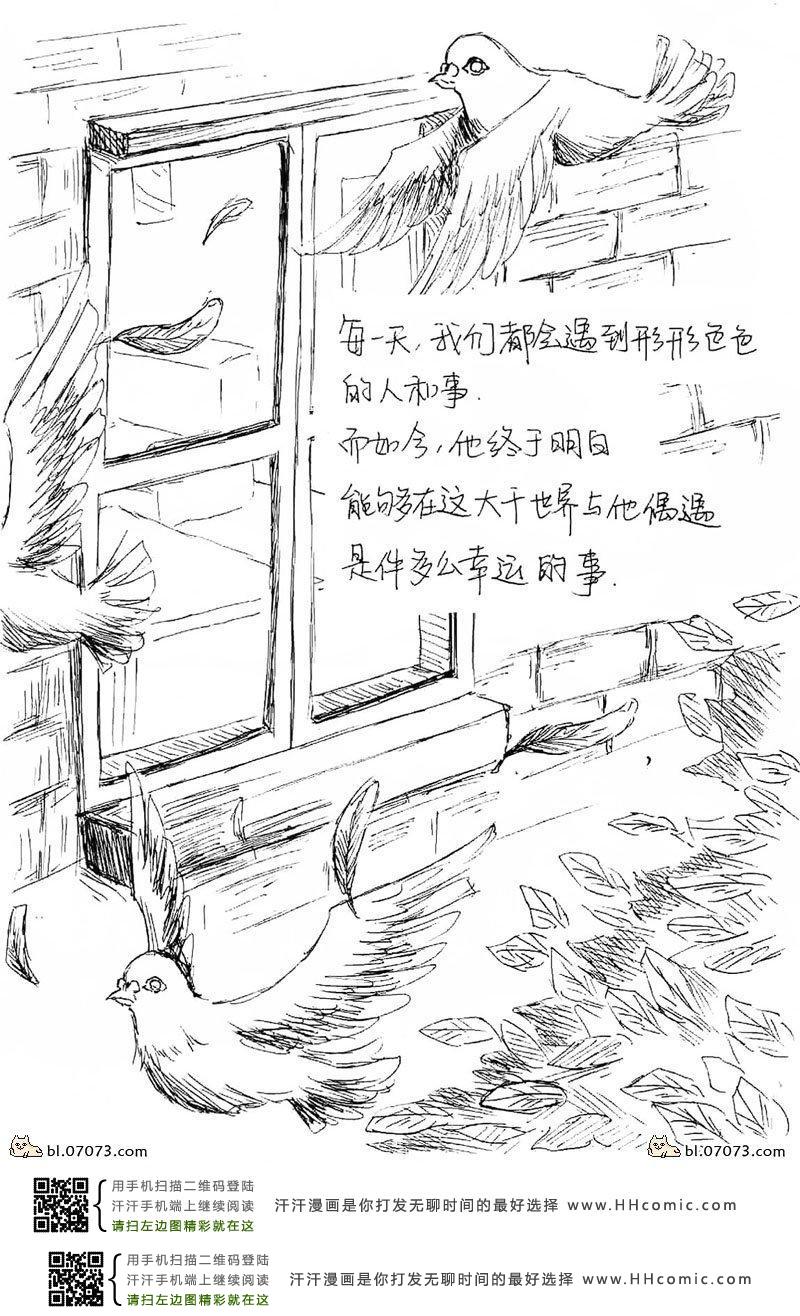 每一天,我们都会遇到形形色色
的人和事.
而如今,他终于明白
能够在这大千世界与他偶遇
是件多么幸运的事.
bl.07073.com
bl.07073.com
用手机扫描二维码登陆
汗汗手机端上继续阅读
请扫左边图精彩就在这
汗汗漫画是你打发无聊时间的最好选择 www.HHcomic.com
用手机扫描二维码登陆
汗汗手机端上继续阅读
请扫左边图精彩就在这
汗汗漫画是你打发无聊时间的最好选择 www.HHcomic.com